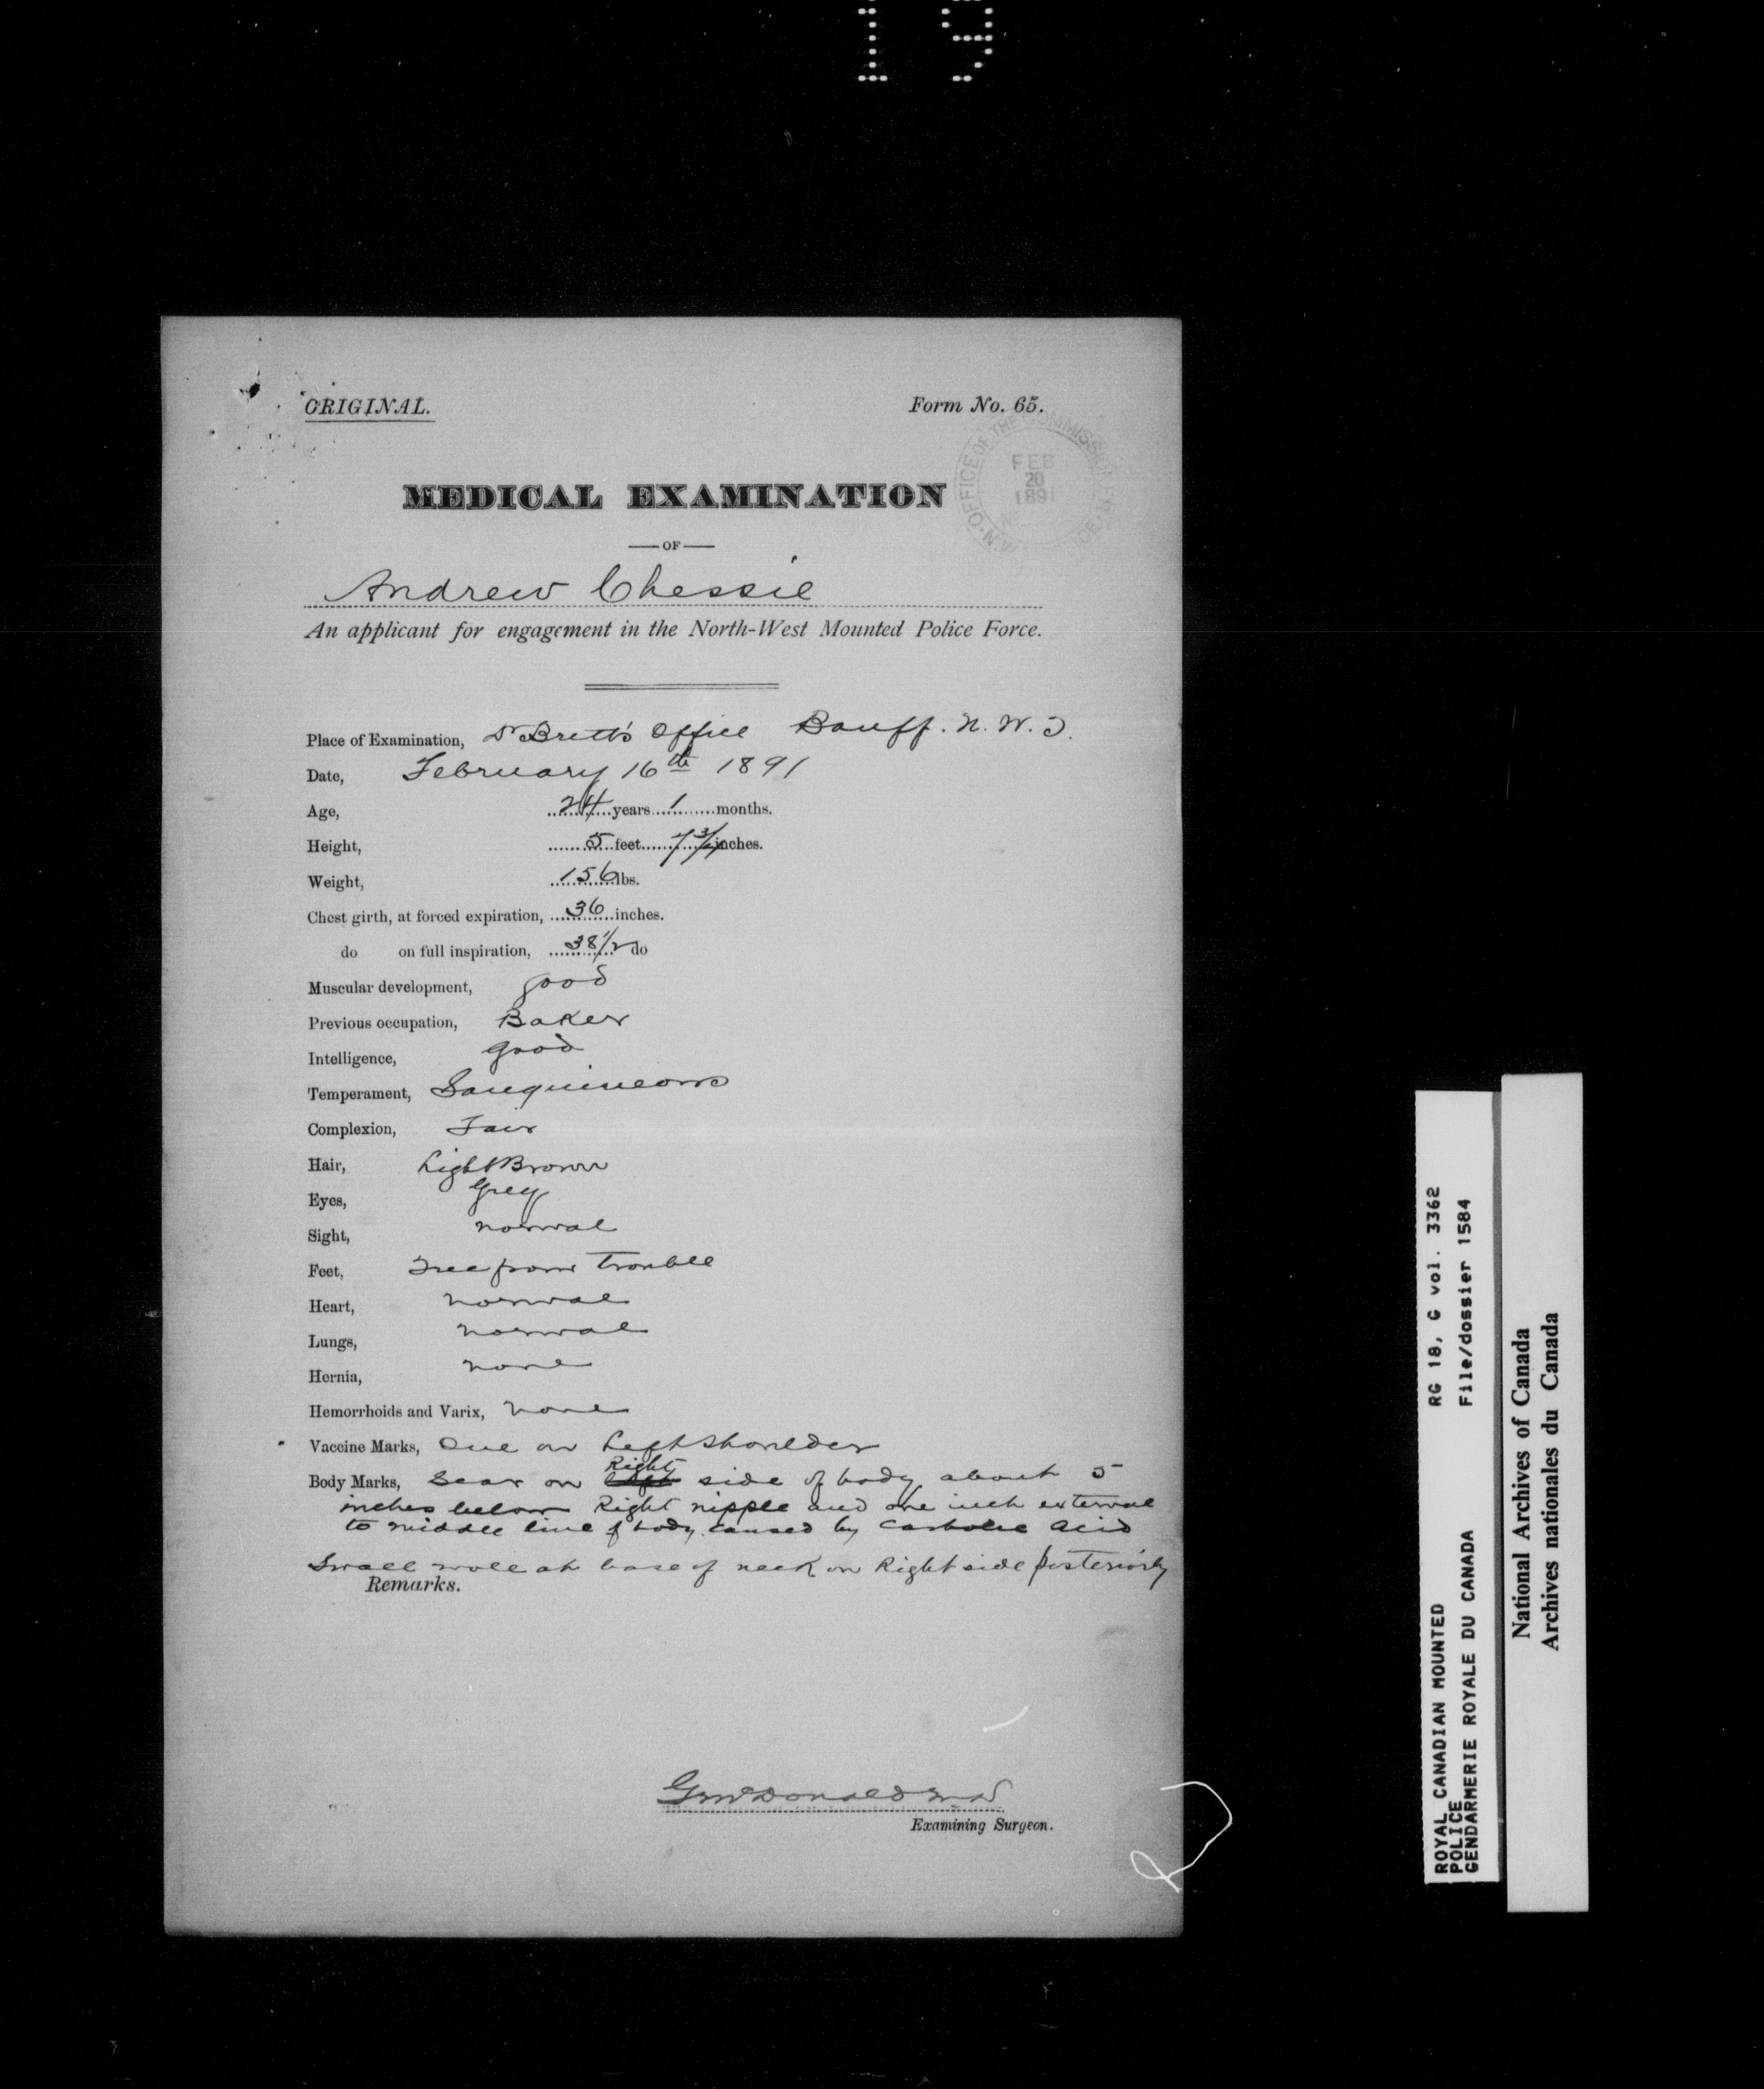 19
ORIGINAL.
Form No. 65.
OFFICE OF THE COMMISSIONER
FEB
20
1891
N.W.
MEDICAL EXAMINATION
—OF—
Andrew Chessie
An applicant for engagement in the North-West Mounted Police Force.
Place of Examination, Dr Brett's Office Banff. N. W. T.
Date, February 16th 1891
Age, 24 years 1 months.
Height, 5 feet 7 3/4 inches.
Weight, 156 lbs.
Chest girth, at forced expiration, 36 inches.
do on full inspiration, 38 1/2 do
Muscular development, good
Previous occupation, Baker
Intelligence, good
Temperament, Sanguineous
Complexion, Fair
Hair, Light Brown
Eyes, Grey
Sight, normal
Feet, Free from trouble
Heart, normal
Lungs, normal
Hernia, none
Hemorrhoids and Varix, none
Vaccine Marks, One on Left Shoulder
Body Marks, Scar on left Right side of body about 5
inches below Right nipple and one inch external
to middle line of body caused by Carbolic Acid
Small mole at base of neck on Right side posteriorly
Remarks.
G McDonald M.D
Examining Surgeon.
ROYAL CANADIAN MOUNTED
POLICE
GENDARMERIE ROYALE DU CANADA
RG 18, G vol. 3362
File/dossier 1584
National Archives of Canada
Archives nationales du Canada